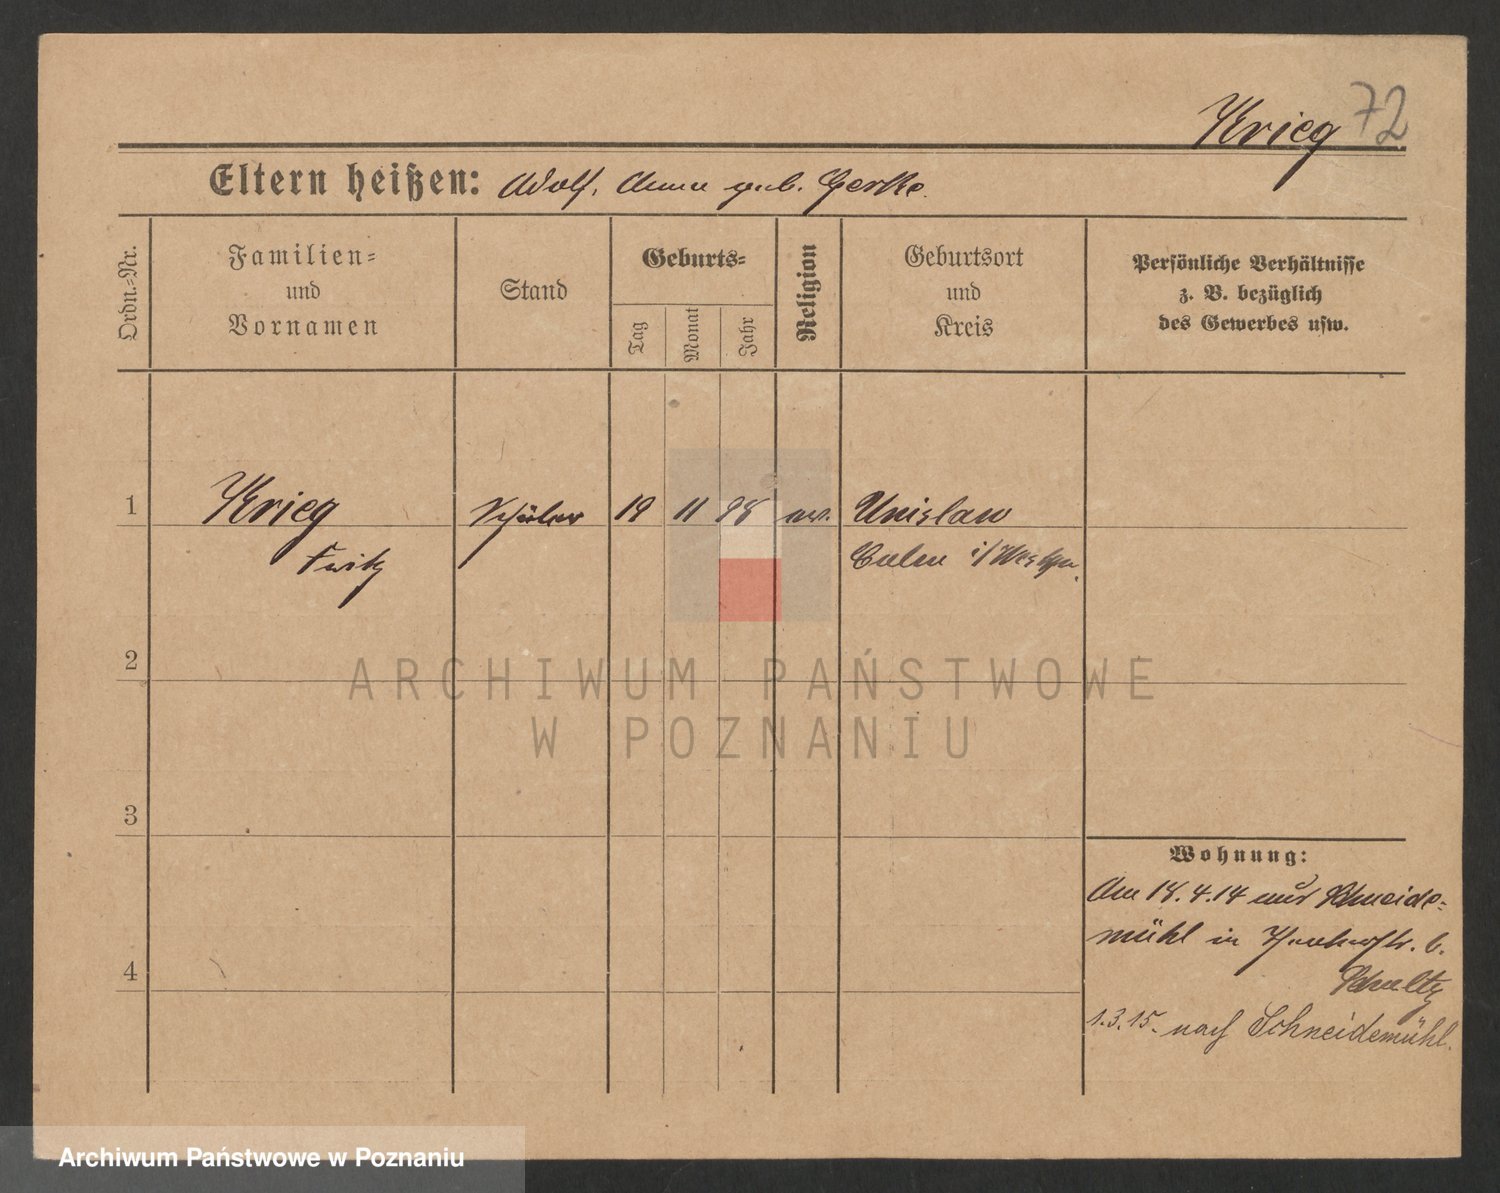 Krieg 72
Eltern heißen: Adolf, Anna geb. Gerke
Ordn.-Nr.
Familien-
und
Vornamen
Stand
Geburts-
Tag
Monat
Jahr
Religion
Geburtsort
und
Kreis
Persönliche Verhältnisse
z. B. bezüglich
des Gewerbes usw.
1 Krieg Schüler 19 11 98 ev. Unislaw
Fritz Culm i/Westpr.
2
ARCHIWUM PAŃSTWOWE
W POZNANIU
3
Wohnung:
Am 18.4.14 aus Schneide-
mühl in b.
4
Schultz
1.3.15. nach Schneidemühl.
Archiwum Państwowe w Poznaniu